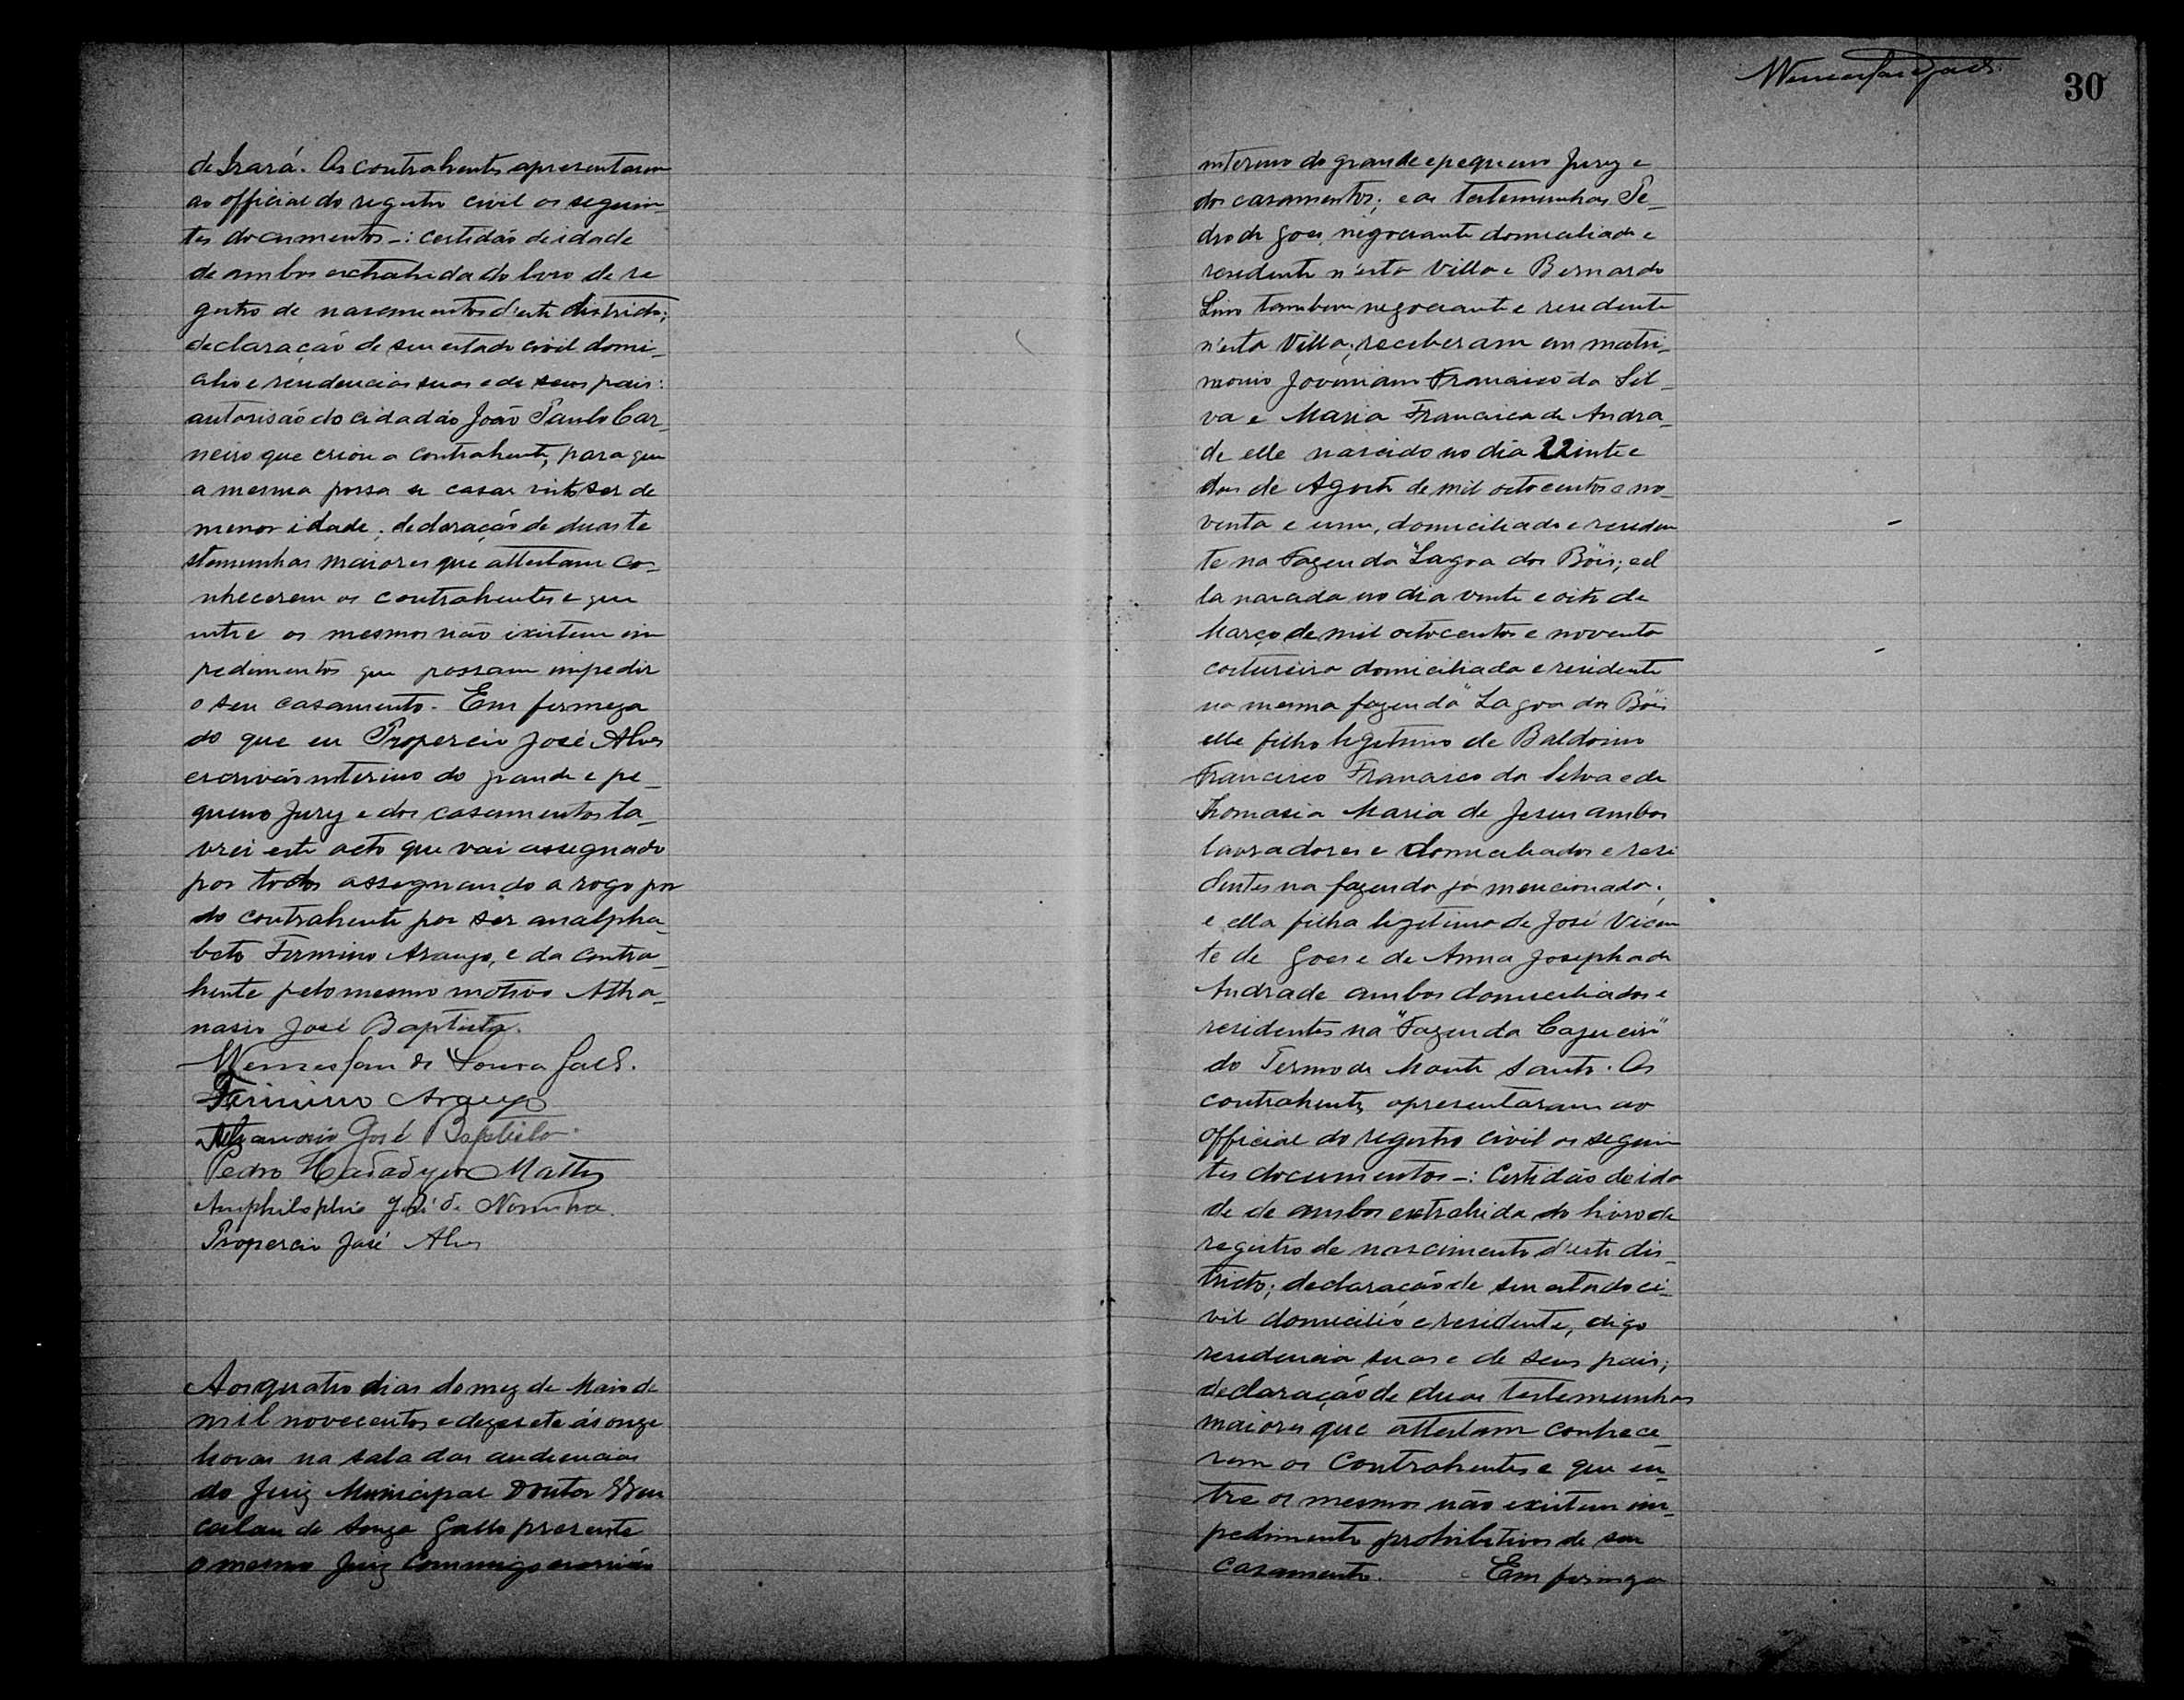 de Irará. Os contrahentes apresentaram
ao official do registro civil os seguin-
tes documentos -: certidão de idade
de ambos exctrahida do livro de re
gistro de nascimentos d'este districto;
declaração de seu estado civil domi-
cilio e residencias suas e de seus pais:
autorisão do cidadão João Paulo Car-
neiro que criou a contrahente, para que
a mesma possa se casar visto ser de
menor idade; declaração de duas te
stemunhas maiores que attestam co-
nhecerem os contrahentes e que
entre os mesmos não existem im
pedimentos que possam impedir
o seu casamento. Em firmeza
do que eu Propercio José Alves
escrivão interino do grande e pe-
queno Jury e dos casamentos la-
vrei este acto que vai assegnado
por todos assegnando a rogo por
do contrahente por ser analpha-
beto Firmino Araujo, e da contra-
hente pelo mesmo motivo Atha-
nasio José Baptista.
Wenceslau de Souza Gallo.
Firmino Araujo
Athanasio José Baptista.
Pedro Mattos
Amphilophio José de Noronha.
Propercio José Alves
Aos quatro dias do mez de Maio de
mil novecentos e dezesete ás onze
horas na sala das audiencias
do Juiz Municipal Doutor Wen
ceslau de Souza Gallo presente
o mesmo Juiz commigo escrivão
30
interino do grande e pequeno Jury e
dos casamentos; e as testemunhas Pe-
dro de Goes, negociante domiciliado e
residente n'esta Villa e Bernardo
Lino tambem negociante e residente
n'esta Villa; receberam em matri-
monio Joviniano Francisco da Sil-
va e Maria Francisca de Andra-
de elle nascido no dia vinte e
dois de Agosto de mil oitocentos e no-
venta e um, domiciliado e residen
te na Fazenda "Lagoa dos Bois; e el
la nascida no dia vinte e oito de
Março de mil oitocentos e noventa
costureira domiciliada e residente
na mesma fazenda "Lagoa dos Bois
elle filho legitimo de Baldoino
Francisco Francisco da Silva e de
Thomasia Maria de Jesus ambos
lavradores e domiciliados e resi
dentes na fazenda já mencionada;
e ella filha legitima de José Vicen
te de Goes e de Anna Josepha de
Andrade ambos domiciliados e
residentes na "Fazenda Cajueiro"
do Termo de Monte Santo. Os
contrahentes apresentaram ao
official do registro civil os seguin
tes documentos -: Certidão de ida
de de ambos extrahida do livro de
registro de nascimento d'este dis-
tricto; declaração de seu estado ci-
vil domicilio e residente, digo
residencia suas e de seus pais;
declaração de duas testemunhas
maiores que attestam conhece-
rem os contrahentes e que en-
tre os mesmos não existem im-
pedimento prohibitivos de seu
casamento. Em firmeza